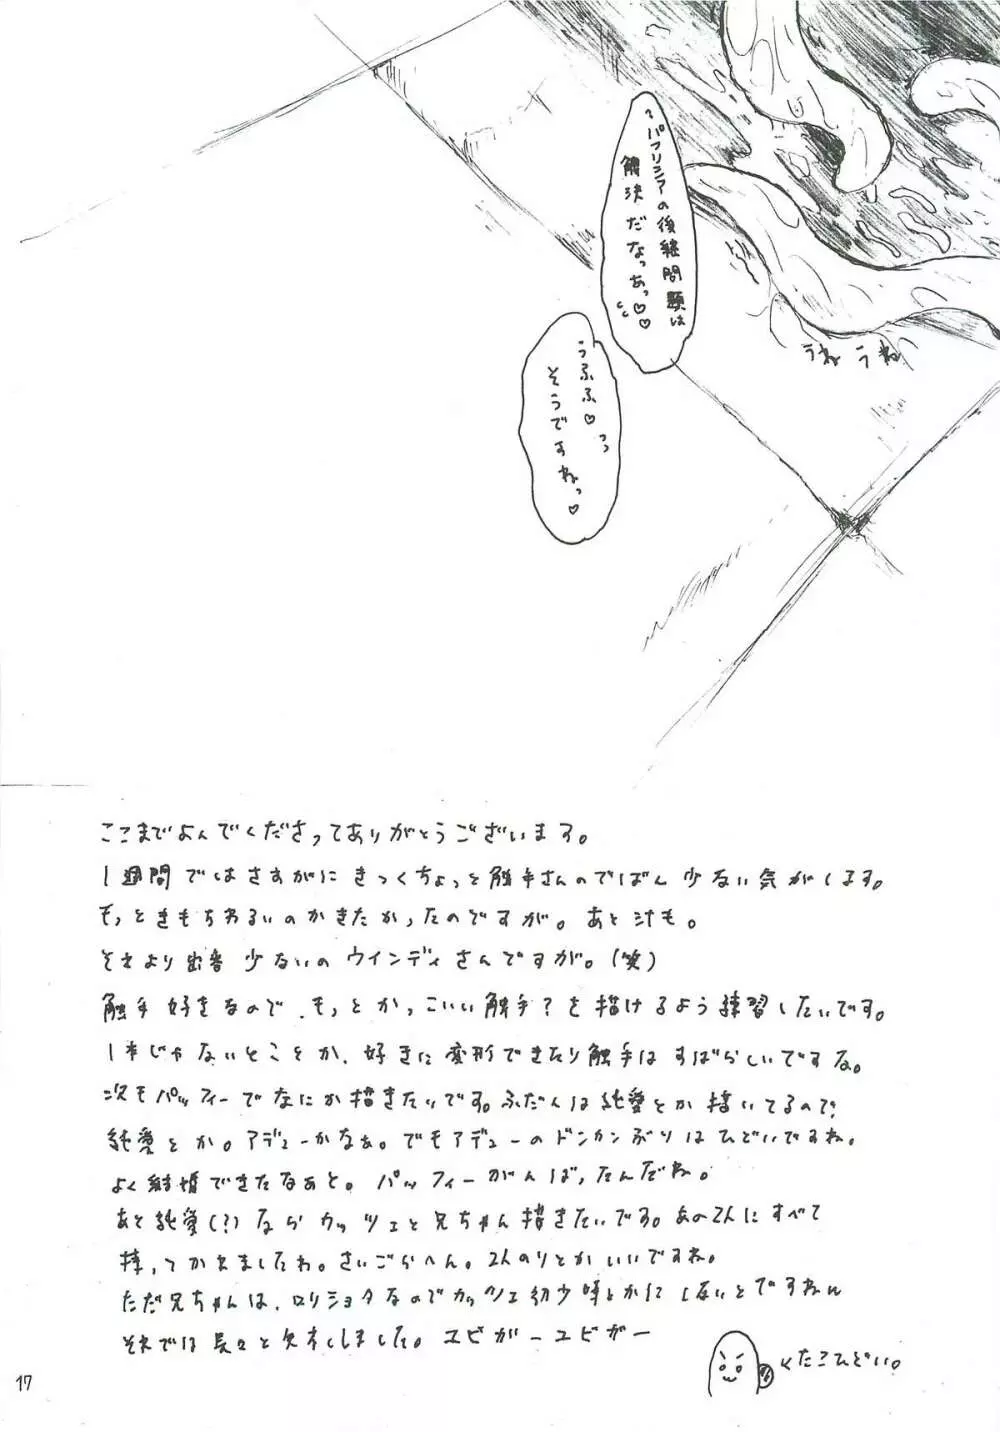 パフリシアの後継問題は
解決だなっあっ♡♡
うふふ♡
そうですねっ♡
うねうね
ここまでよんでくださってありがとうございます。
1週間ではさすがにきつくちょっと触手さんのでばん少ない気がします。
もっときもちわるいのかきたかったのですが。あと汁も。
それより出番少ないのウインディさんですが。(笑)
触手好きなので、もっとかっこいい触手?を描けるよう練習したいです。
1本じゃないとことか、好きに変形できたり触手はすばらしいですな。
次もパッフィーでなにか描きたいです。ふだんは純愛とか描いてるので
純愛とか。アデューかなぁ。でもアデューのドンカンぶりはひどいですね。
よく結婚できたなぁと。パッフィーがんばったんだね。
あと純愛(?)ならカッツェと兄ちゃん描きたいです。あの2人にすべて
持ってかれましたね。さいごらへん。2人のりとかいいですね。
ただ兄ちゃんは、ロリショタなのでカッツェ幼少時とかにしないとですねw
それでは長々と失礼しました。ユビガーユビガー
くたこひどい。
17